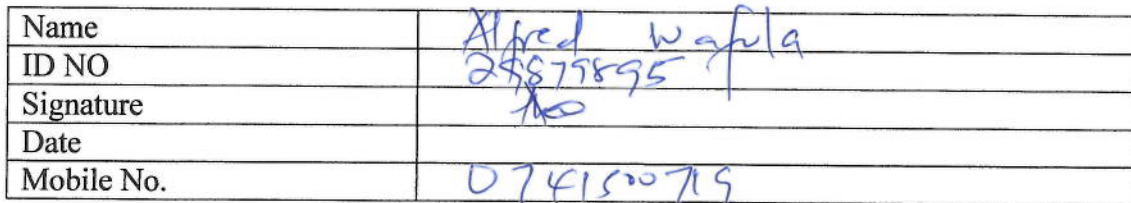 Name Alfred Wafula
ID NO
Signature
Date
Mobile No. 0741500719